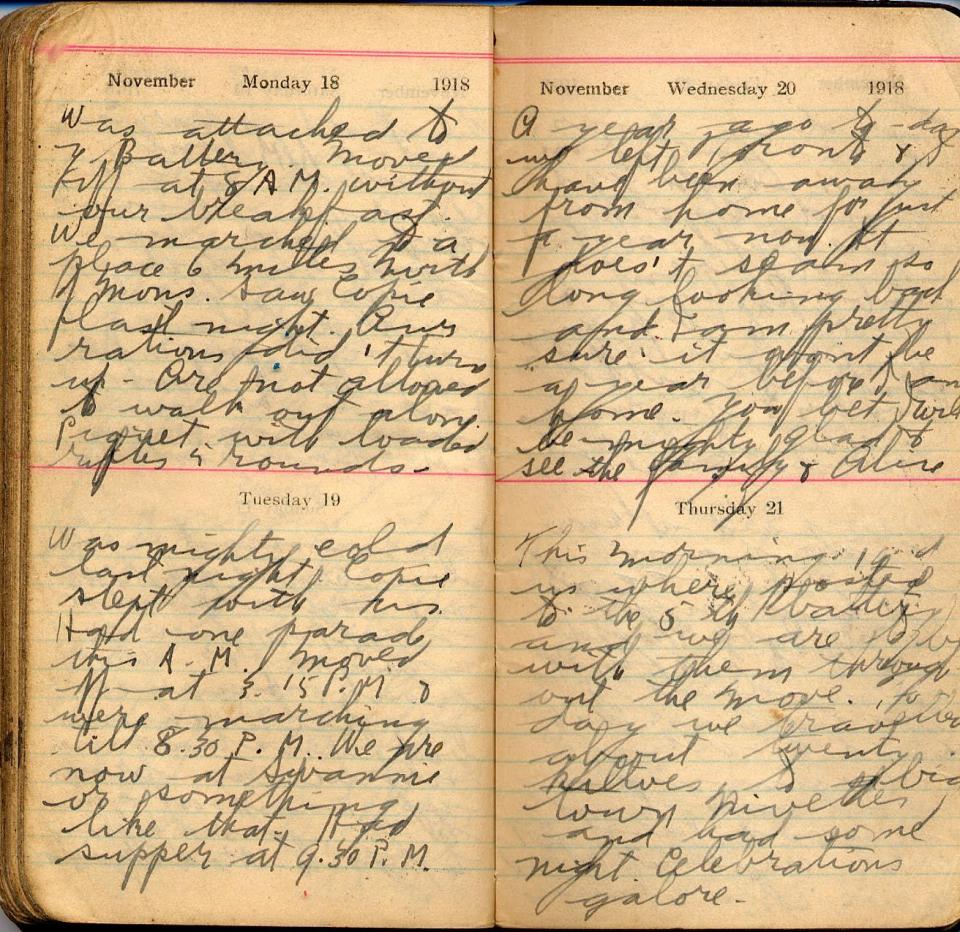 November Monday 18 1918
Was attached to
a Battery moved
off at 8 A M. without
our breakfast.
We marched to a
place 6 miles north
of Mons. Saw Copie
last night. Our
rations did't turn
up - Are not allowed
to walk out alone.
Piquet with loaded
rifles 5 rounds -
Tuesday 19
Was mighty cold
last night. Copie
slept with his.
Had one parade
this A. M. moved
off at 3.15 P.M &
were marching
till 8.30 P. M. We are
now at
or something
like that. Had
supper at 9.30 P. M.
November Wednesday 20 1918
A year ago to-day
we left front &
have been away
from home for just
a year now. It
does't seam so
long looking back
and I am pretty
sure it wont be
a year before I am
home. You bet I will
be mighty glad to
see the family & Alice
Thursday 21
This morning
us where posted
to the 5 th battery
and we are to be
with them through
out the move. To
day we travelled
about twenty
to a big
town Nivelles
and had some
night. Celebrations
galore.